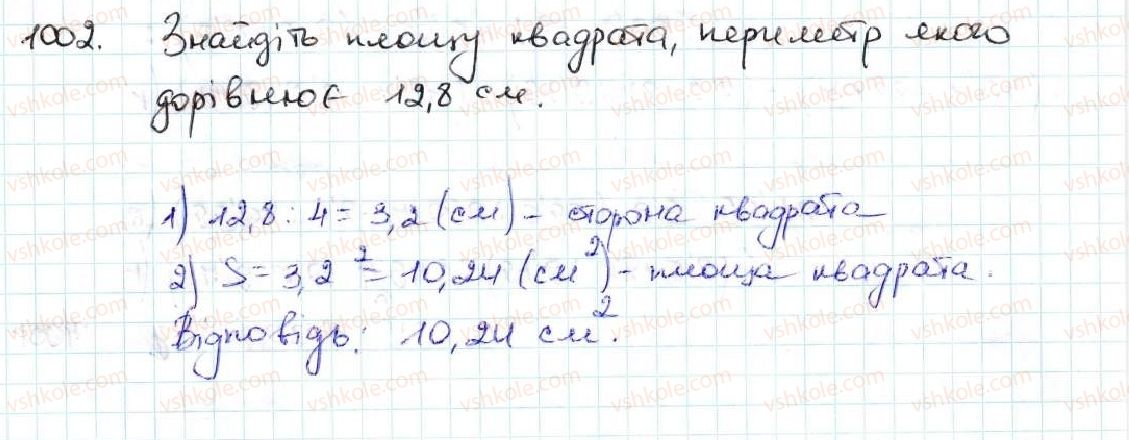 1002. Знайдіть площу квадрата, периметр якого
дорівнює 12,8 см.
1) 12,8 : 4 = 3,2 (см) - сторона квадрата
2) S = 3,2² = 10,24 (см²) - площа квадрата.
Відповідь: 10,24 см².